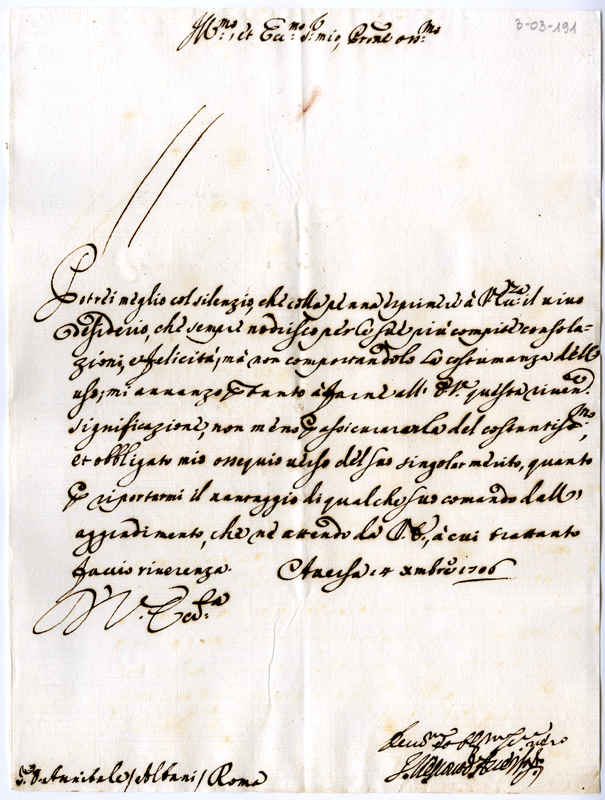 3-03-191
Ill.mo et Ecc.mo S.r mio, Prone oss.mo
Potrei meglio col silenzio, che colla penna esprimere à V. Ecc.za il vivo
desiderio, che sempre nodrisco per le sue più compite consola-
zioni, e felicità; mà non comportandolo la costumanza dell'
uso; mi avanzo p tanto à farne all' E.V. questa river.e
significazione, non meno p assicurarla del costantiss.mo,
et obbligato mio ossequio verso del suo singolar merito, quanto
p riportarmi il vantaggio di qualche suo comando dall'
aggradimento, che ne attendo da V.E., à cui trattanto
faccio riverenza. Aversa 14 Xmbre 1706
D V. Ecc.za
S.r D. Annibale Albani Roma